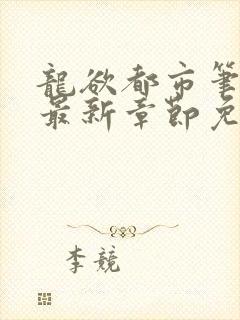 龍欲都市筆
最新章節免
李競